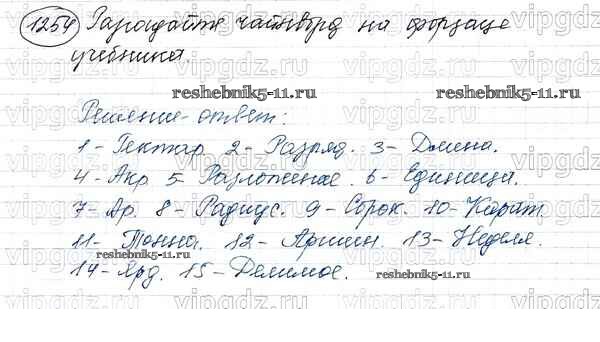 1254 Разгадайте чайнворд на форзаце
учебника.
reshebnik5-11.ru
Решение-ответ:
1- Гектар 2- Разряд. 3- Длина.
4- Акр 5- Разложение. 6- Единица.
7- Ар. 8- Радиус. 9- Сорок. 10- Карат.
11- Тонна. 12- Аршин. 13- Неделя.
reshebnik5-11.ru
14- Ярд. 15- Делимое. reshebnik5-11.ru